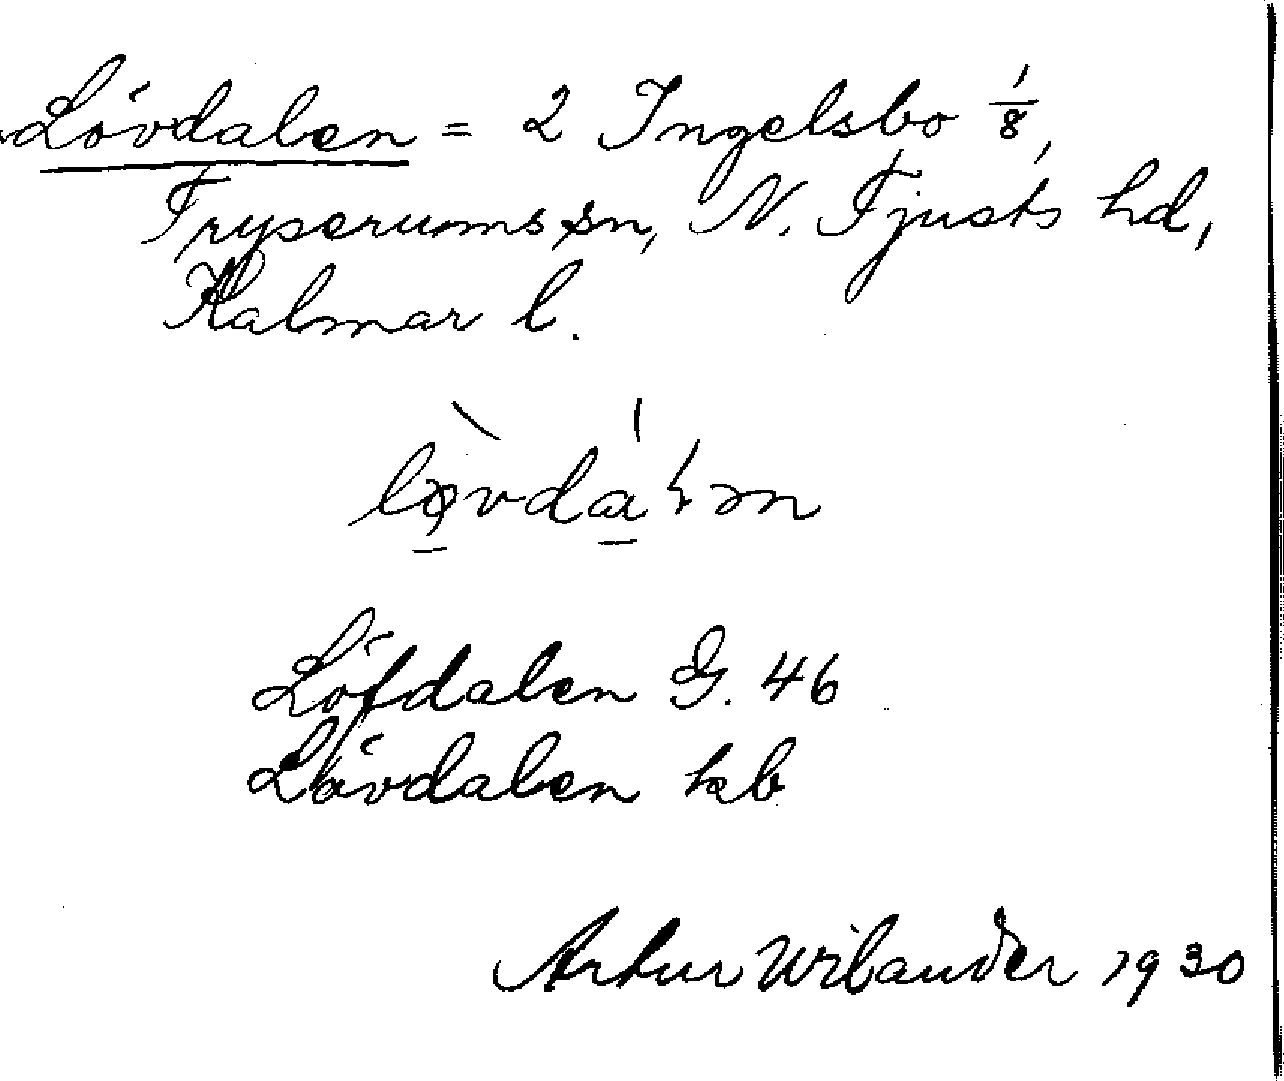 Lövdalen = 2 Ingelsbo 1/8,
Tryserums sn, N. Tjusts hd,
Kalmar l.
Löfdalen G. 46
Lövdalen kb
Artur Wilander 1930